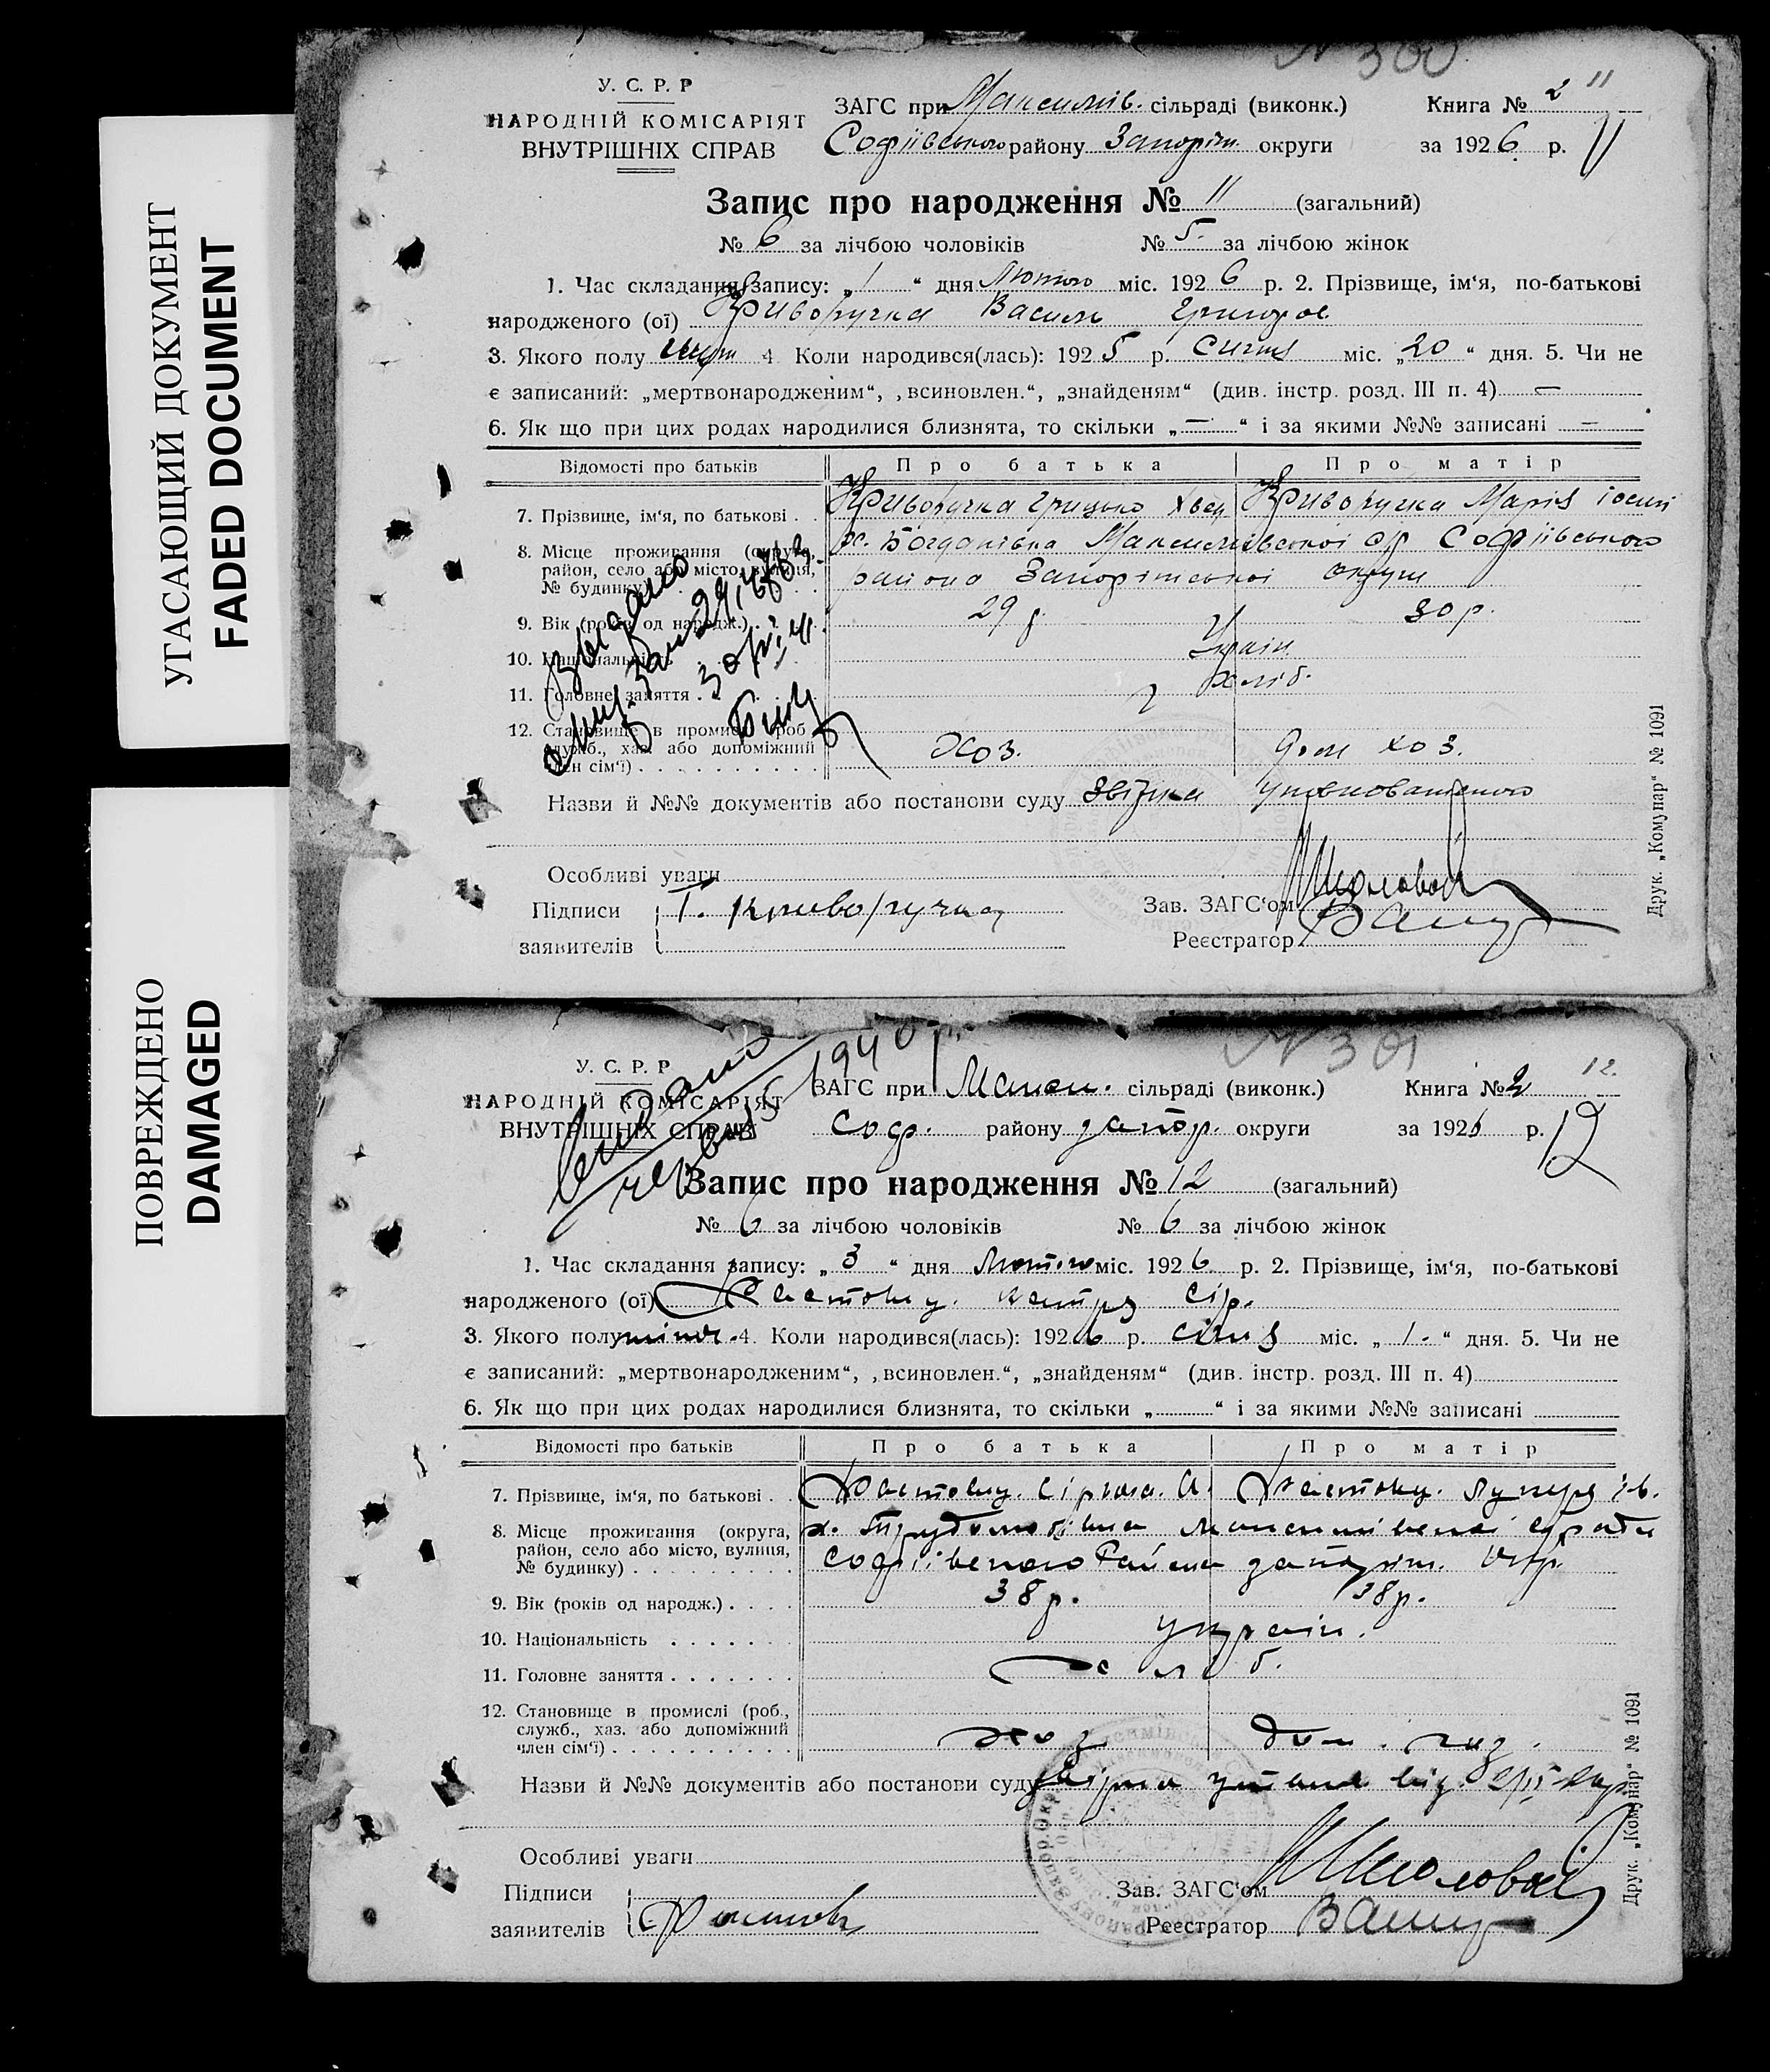 УГАСАЮЩИЙ ДОКУМЕНТ
FADED DOCUMENT
ПОВРЕЖДЕНО
DAMAGED
N 300
У. С. Р. Р
НАРОДНІЙ КОМІСАРІЯТ
ВНУТРІШНІХ СПРАВ
ЗАГС при Максимів. сільраді (виконк.) Книга № 2 11
Софіївського району Запоріж. округи за 1926 р. 11
Запис про народження № 11 (загальний)
№ 6 за лічбою чоловіків № 5. за лічбою жінок
1. Час складання запису: „1“ дня Лютого міс. 1926 р. 2. Прізвище, ім‘я, по-батькові
народженого (ої) Криворучка Василь Григоров.
3. Якого полу 4 Коли народився(лась): 1925 р. Січня міс. „20“ дня. 5. Чи не
є записаний: „мертвонародженим“, „всиновлен.“, „знайденям“ (див. інстр. розд. III п. 4) —
6. Як що при цих родах народилися близнята, то скільки „—“ і за якими №№ записані —
Відомості про батьків Про батька Про матір
7. Прізвище, ім‘я, по батькові . . Криворучка Грицько Хвед Криворучка Марія Іосип
8. Місце проживання (округа, х. Богданівка Максимівської с/р Софіївського
район, село або місто, вулиця, района Запоріжської округи
№ будинку)
9. Вік (років од народж.) . . . 29 р. 30 р.
10. Національність Україн.
11. Головне заняття . . . хліб.
12. Становище в промислі (роб.,
служб., хаз. або допоміжний хоз. дом хоз.
член сім‘ї) . . . . . . . . . .
Видано
Назви й №№ документів або постанови суду Звістка уповноваженого
Особливі уваги
Підписи Г. Криворучка Зав. ЗАГС‘ом
заявителів Реєстратор
Друк. „Комунар“ № 1091
N 301
Видано
1940 р.
У. С. Р. Р
НАРОДНІЙ КОМІСАРІЯТ
ВНУТРІШНІХ СПРАВ
ЗАГС при Максим. сільраді (виконк.) Книга № 2 12.
Соф. району Запор. округи за 1926 р. 12
Запис про народження № 12 (загальний)
№ 6 за лічбою чоловіків № 6 за лічбою жінок
1. Час складання запису: „3“ дня Лютого міс. 1926 р. 2. Прізвище, ім‘я, по-батькові
народженого (ої) Сір.
3. Якого полу жіноч. 4. Коли народився(лась): 1926 р. січня міс. „1.“ дня. 5. Чи не
є записаний: „мертвонародженим“, „всиновлен.“, „знайденям“ (див. інстр. розд. III п. 4)
6. Як що при цих родах народилися близнята, то скільки „ “ і за якими №№ записані
Відомості про батьків Про батька Про матір
7. Прізвище, ім‘я, по батькові . .
8. Місце проживання (округа, х. Трудолюбівка Максимівської с/ради
район, село або місто, вулиця, Софіївського Района Запоріж. Окр.
№ будинку) . . . . . . . . .
9. Вік (років од народж.) . . . . 38 р. 38 р.
10. Національність . . . . . . . україн.
11. Головне заняття . . . . . . . хліб.
12. Становище в промислі (роб.,
служб., хаз. або допоміжний хоз дом. хаз.
член сім‘ї) . . . . . . . . . .
Назви й №№ документів або постанови суду звістка
Особливі уваги
Підписи Зав. ЗАГС‘ом
заявителів Реєстратор
Друк. „Комунар“ № 1091